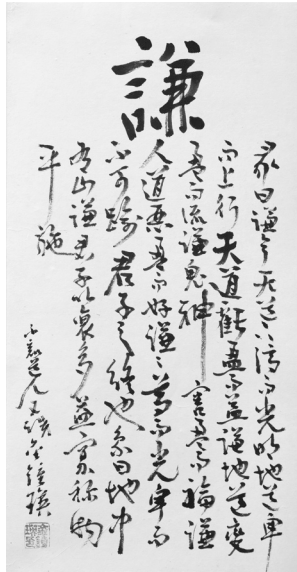 謙
彖曰謙亨天道下濟而光明地道卑
而上行天道虧盈而益謙地道變
盈而流謙鬼神害盈而福謙
人道惡盈而好謙々尊而光卑而
不可踰君子之終也象曰地中
有山謙君子以裒多益寡稱物
平施